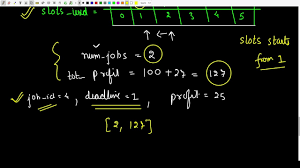 slots_used
0 1 2 3 4 5
num_jobs = 2
tot_profit = 100 + 27 = 127
slots starts
from 1
job_id = 4, deadline = 1, profit = 25
[2, 127]